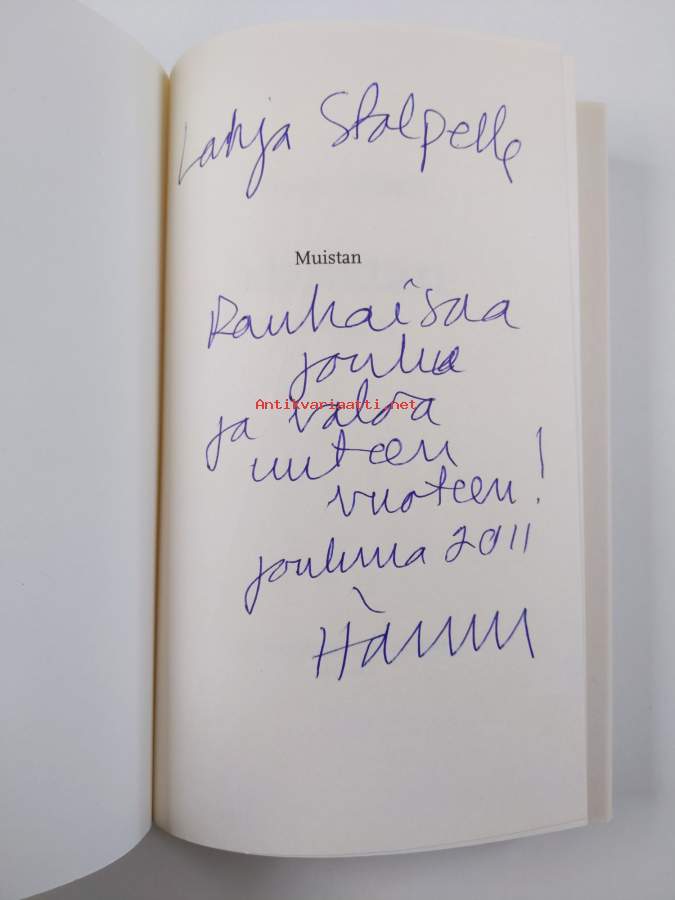 Lahja Stolpelle
Muistan
Rauhaisaa
joulua
Antikvariaatti.net
ja valoa
uuteen
vuoteen!
jouluna 2011
Hannu